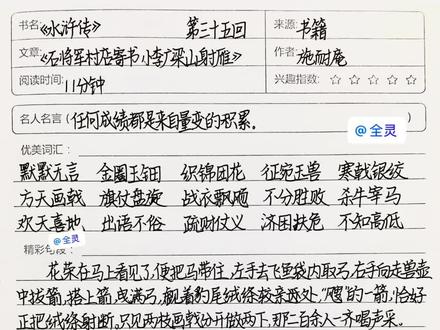 书名:《水浒传》 第三十五回 来源: 书籍
文章:《石将军村店寄书 小李广梁山射雁》 作者: 施耐庵
阅读时间: 11分钟 兴趣指数: ☆ ☆ ☆ ☆ ☆
名人名言(任何成绩都是来自量变的积累。
@全灵
优美词汇:
默默无言 金圈玉钿 织锦团花 征宛玉兽 寒戟银绞
方天画戟 旗仗盘旋 战衣飘飐 不分胜败 杀牛宰马
欢天喜地 出语不俗 疏财仗义 济困扶危 不知高低
@全灵
精彩句段:
花荣在马上看见了,便把马带住,左手去飞鱼袋内取弓,右手向走兽壶
中拔箭,搭上箭,曳满弓,觑着豹尾绒绦较亲处,"飕"的一箭,恰好
正把绒绦射断。只见两枝画戟分开做两下,那二百余人一齐喝声采。